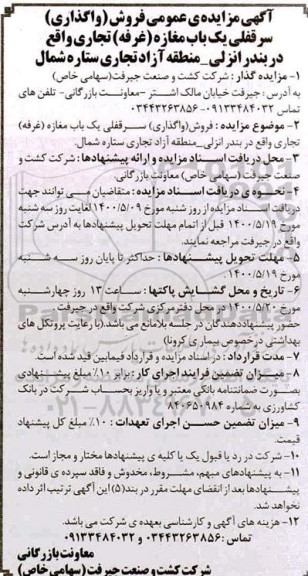 آگهی مزایده‌ی عمومی فروش (واگذاری)
سرقفلی یک باب مغازه (غرفه) تجاری واقع
در بندر انزلی_منطقه آزاد تجاری ستاره شمال
۱- مزایده گذار : شرکت کشت و صنعت جیرفت(سهامی خاص)
به آدرس: جیرفت خیابان مالک اشتر -معاونت بازرگانی- تلفن های
تماس ۰۹۱۳۳۴۸۴۰۳۲-۰۳۴۴۳۲۶۳۸۵۶
۲- موضوع مزایده : فروش(واگذاری) سرقفلی یک باب مغازه (غرفه)
تجاری واقع در بندر انزلی_منطقه آزاد تجاری ستاره شمال.
۳- محل دریافت اسناد مزایده و ارائه پیشنهادها : شرکت کشت و
صنعت جیرفت (سهامی خاص) معاونت بازرگانی.
۴- نحوه ی دریافت اسناد مزایده : متقاضیان می توانند جهت
دریافت اسناد مزایده از روز شنبه مورخ ۱۴۰۰/۵/۰۹ لغایت روز سه شنبه
مورخ ۱۴۰۰/۵/۱۹ قبل از اتمام مهلت تحویل پیشنهادها به آدرس شرکت
واقع در جیرفت مراجعه نمایند.
۵- مهلت تحویل پیشنهادها : حداکثر تا پایان روز سه شنبه
مورخ ۱۴۰۰/۵/۱۹.
۶- تاریخ و محل گشایش پاکتها : ساعت ۱۳ روز چهارشنبه
مورخ ۱۴۰۰/۵/۲۰ از محل دفتر مرکزی شرکت واقع در جیرفت
حضور پیشنهاددهندگان در جلسه بلامانع می باشد.(با رعایت پروتکل های
بهداشتی در خصوص بیماری کرونا)
۷- مدت قرارداد : در اسناد مزایده و قرارداد فیمابین قید شده است.
۸- میزان تضمین فرایند اجرای کار : برابر ۱۰٪ مبلغ پیشنهادی
بصورت ضمانتنامه بانکی معتبر و یا واریز بحساب شرکت در بانک
کشاورزی به شماره ۸۴۰۶۵۰۹۸۴
۹- میزان تضمین حسن اجرای تعهدات : ۱۰٪ مبلغ کل پیشنهاد
قیمت.
۱۰- شرکت در رد یا قبول یک یا کلیه ی پیشنهادها مختار و مجاز است.
۱۱- به پیشنهادهای مبهم، مشروط، مخدوش و فاقد سپرده ی قانونی و
پیشنهادها بعد از انقضای مهلت مقرر در بند(۵) این آگهی ترتیب اثر داده
نخواهد شد.
۱۲- هزینه های آگهی و کارشناسی بعهده ی شرکت می باشد.
تماس: ۰۳۴۴۳۲۶۳۸۵۶ و ۰۹۱۳۳۴۸۴۰۳۲
معاونت بازرگانی
شرکت کشت و صنعت جیرفت (سهامی خاص)